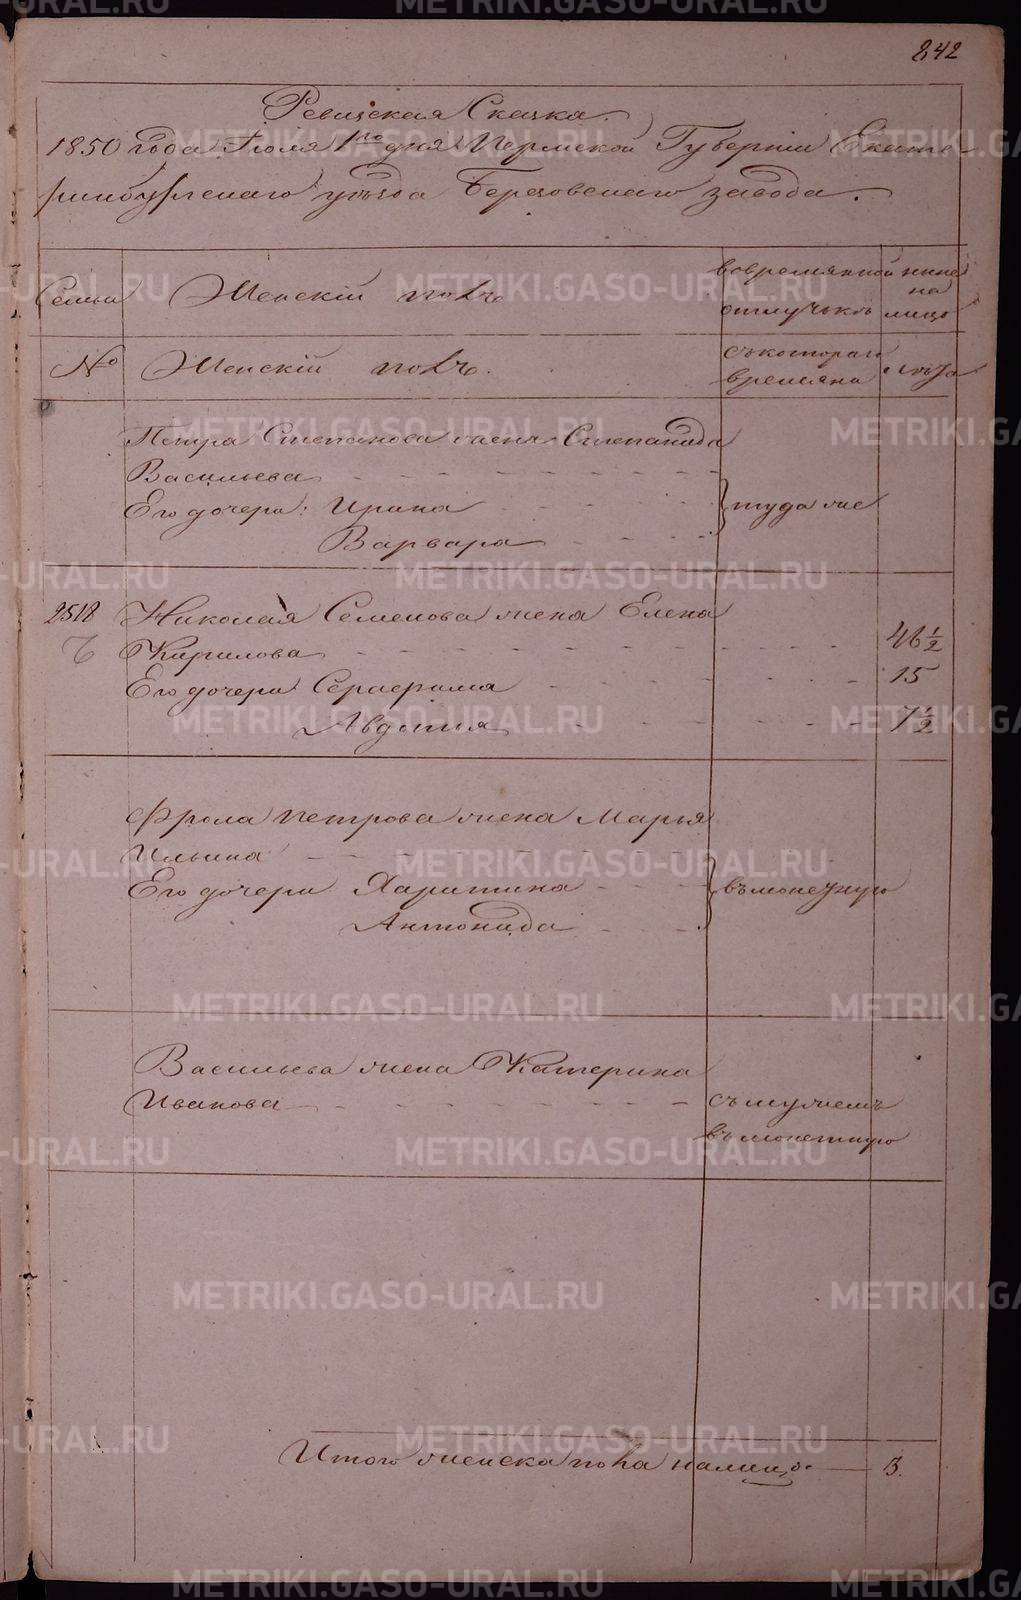 242
Ревизская Сказка.
1850 года Іюля 1го дня Пермской Губерніи Екате-
ринбургскаго уѣзда Березовскаго завода.
Семьи Женскій полъ вовремянной отлучькѣ ныне на лицо
№ Женскій полъ. съкотораго времяни лѣта
Петра Степанова жена Степанида
Васильева
Его дочери: Ирина } туда же
Варвара
2518 Николая Семенова жена Елена
6 Кирилова 46 1/2
Его дочери Серафима 15
Авдотья 7 1/2
Фрола Петрова жена Марья
Ильина
Его дочери Харитина } въмонетную
Антонида
Васильева жена Катерина
Иванова съмужемъ
въмонетную
Итого женска пола налицо 3.
METRIKI.GASO-URAL.RU